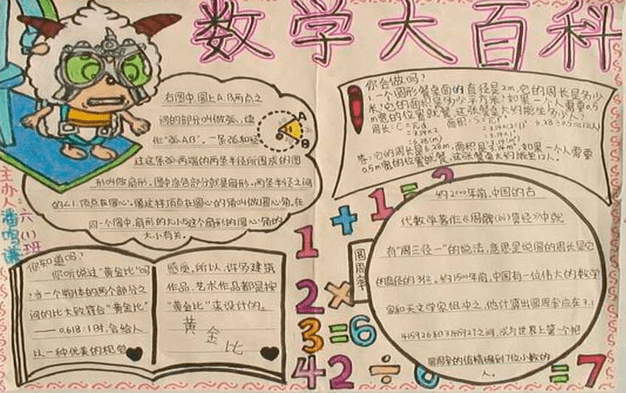 数学大百科
右图中,圆上A、B两点之
间的部分叫做弧,读
作“弧AB”,一条弧和经
过这条弧两端的两条半径所围成的图
形叫做扇形,图中涂色部分就是扇形,两条半径之间
的∠1,顶点在圆心,像这样顶点在圆心的角叫做圆心角,在
同一个图中,扇形的大小与这个扇形的圆心角的
大小有关。
A
B
你会做吗?
1.一个圆形餐桌面的直径是2m,它的周长是多少
米?它的面积是多少平方米?如果一个人需要0.5
m宽的位置就餐,这张餐桌大约能坐多少人?
答:它的周长是6.28m,面积是3.14m²,如果一个人需要
0.5m宽的位置就餐,这张餐桌大约能坐12人。
主办人:
六(1)班
你知道吗?
你听说过“黄金比”吗
?当一个物体的两个部分之
间的比大致符合“黄金比”
——0.618:1时,会给人
以一种优美的视觉
感受,所以,许多建筑
作品、艺术作品都是按
“黄金比”来设计的。
黄金比
1+1=2
2×
3=6
42÷6=7
圆周率
约2000年前,中国的古
代数学著作《周髀算经》中就
有“周三径一”的说法,意思是说圆的周长是它
的直径的3倍。约1500年前,中国有一位伟大的数学
家和天文学家祖冲之,他计算出圆周率应在3.1
415926和3.1415927之间,成为世界上第一个把
圆周率的值精确到7位小数的
人。